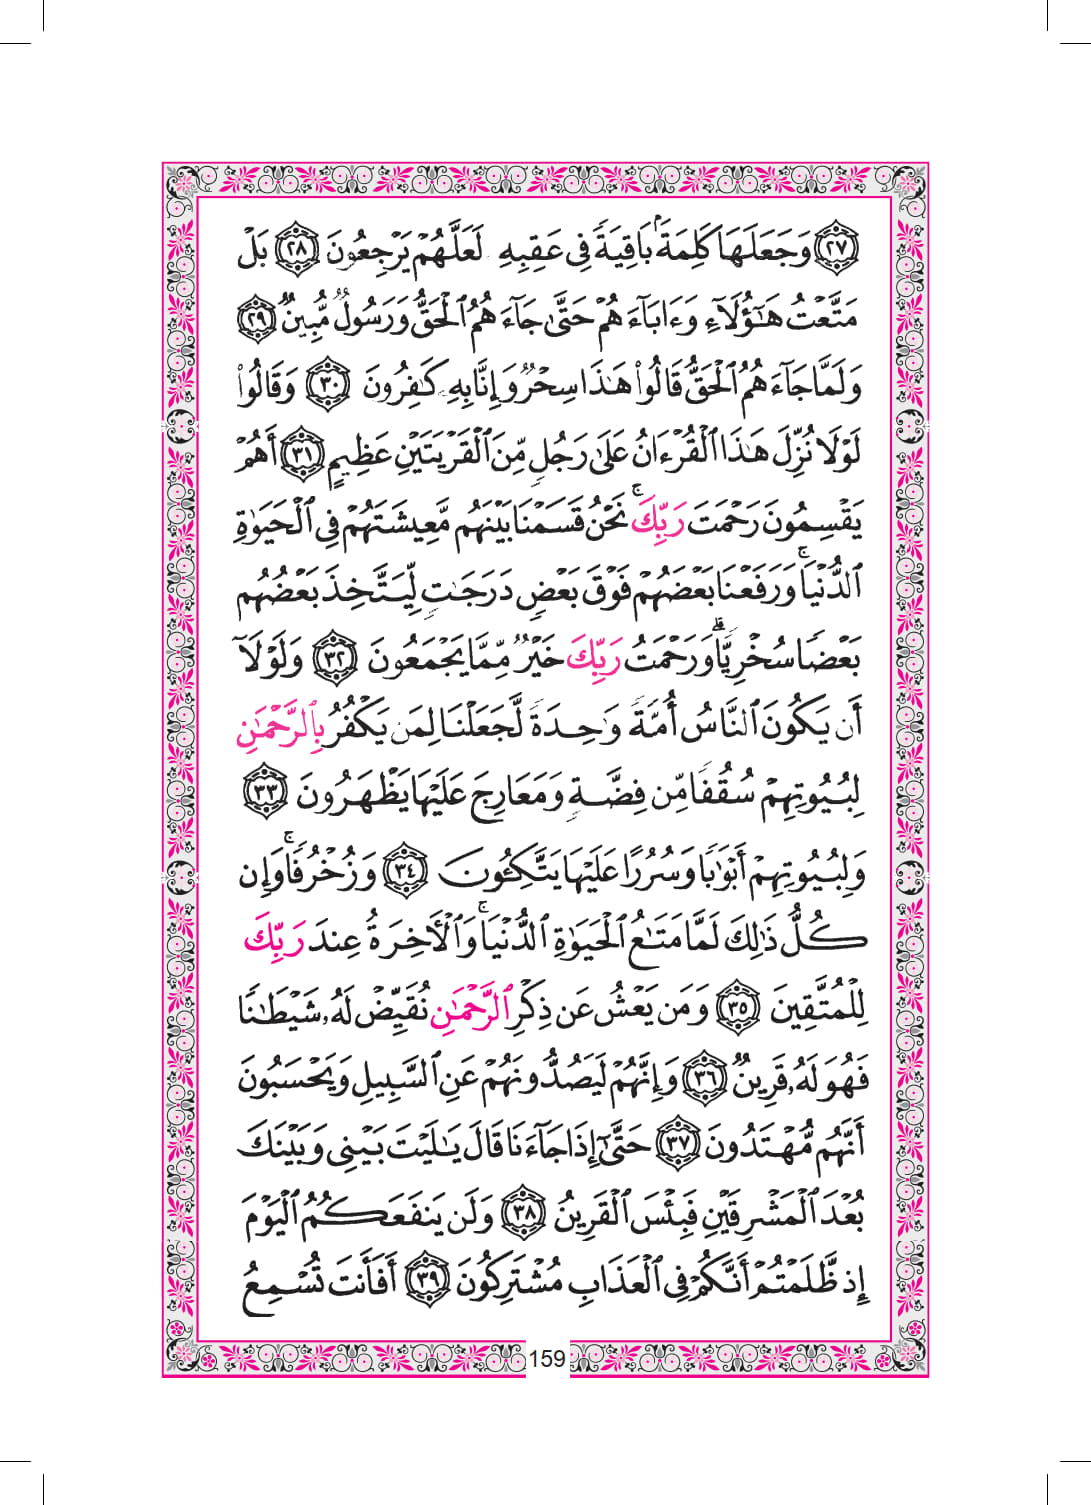 ﴿٢٧﴾ وَجَعَلَهَا كَلِمَةًۢ بَاقِيَةً فِى عَقِبِهِۦ لَعَلَّهُمْ يَرْجِعُونَ ﴿٢٨﴾ بَلْ
مَتَّعْتُ هَـٰٓؤُلَآءِ وَءَابَآءَهُمْ حَتَّىٰ جَآءَهُمُ ٱلْحَقُّ وَرَسُولٌ مُّبِينٌ ﴿٢٩﴾
وَلَمَّا جَآءَهُمُ ٱلْحَقُّ قَالُوا۟ هَـٰذَا سِحْرٌ وَإِنَّا بِهِۦ كَـٰفِرُونَ ﴿٣٠﴾ وَقَالُوا۟
لَوْلَا نُزِّلَ هَـٰذَا ٱلْقُرْءَانُ عَلَىٰ رَجُلٍ مِّنَ ٱلْقَرْيَتَيْنِ عَظِيمٍ ﴿٣١﴾ أَهُمْ
يَقْسِمُونَ رَحْمَتَ رَبِّكَ ۚ نَحْنُ قَسَمْنَا بَيْنَهُم مَّعِيشَتَهُمْ فِى ٱلْحَيَوٰةِ
ٱلدُّنْيَا ۚ وَرَفَعْنَا بَعْضَهُمْ فَوْقَ بَعْضٍ دَرَجَـٰتٍ لِّيَتَّخِذَ بَعْضُهُم
بَعْضًا سُخْرِيًّا ۗ وَرَحْمَتُ رَبِّكَ خَيْرٌ مِّمَّا يَجْمَعُونَ ﴿٣٢﴾ وَلَوْلَآ
أَن يَكُونَ ٱلنَّاسُ أُمَّةً وَٰحِدَةً لَّجَعَلْنَا لِمَن يَكْفُرُ بِٱلرَّحْمَـٰنِ
لِبُيُوتِهِمْ سُقُفًا مِّن فِضَّةٍ وَمَعَارِجَ عَلَيْهَا يَظْهَرُونَ ﴿٣٣﴾
وَلِبُيُوتِهِمْ أَبْوَٰبًا وَسُرُرًا عَلَيْهَا يَتَّكِـُٔونَ ﴿٣٤﴾ وَزُخْرُفًا ۚ وَإِن
كُلُّ ذَٰلِكَ لَمَّا مَتَـٰعُ ٱلْحَيَوٰةِ ٱلدُّنْيَا ۚ وَٱلْـَٔاخِرَةُ عِندَ رَبِّكَ
لِلْمُتَّقِينَ ﴿٣٥﴾ وَمَن يَعْشُ عَن ذِكْرِ ٱلرَّحْمَـٰنِ نُقَيِّضْ لَهُۥ شَيْطَـٰنًا
فَهُوَ لَهُۥ قَرِينٌ ﴿٣٦﴾ وَإِنَّهُمْ لَيَصُدُّونَهُمْ عَنِ ٱلسَّبِيلِ وَيَحْسَبُونَ
أَنَّهُم مُّهْتَدُونَ ﴿٣٧﴾ حَتَّىٰٓ إِذَا جَآءَنَا قَالَ يَـٰلَيْتَ بَيْنِى وَبَيْنَكَ
بُعْدَ ٱلْمَشْرِقَيْنِ فَبِئْسَ ٱلْقَرِينُ ﴿٣٨﴾ وَلَن يَنفَعَكُمُ ٱلْيَوْمَ
إِذ ظَّلَمْتُمْ أَنَّكُمْ فِى ٱلْعَذَابِ مُشْتَرِكُونَ ﴿٣٩﴾ أَفَأَنتَ تُسْمِعُ
159